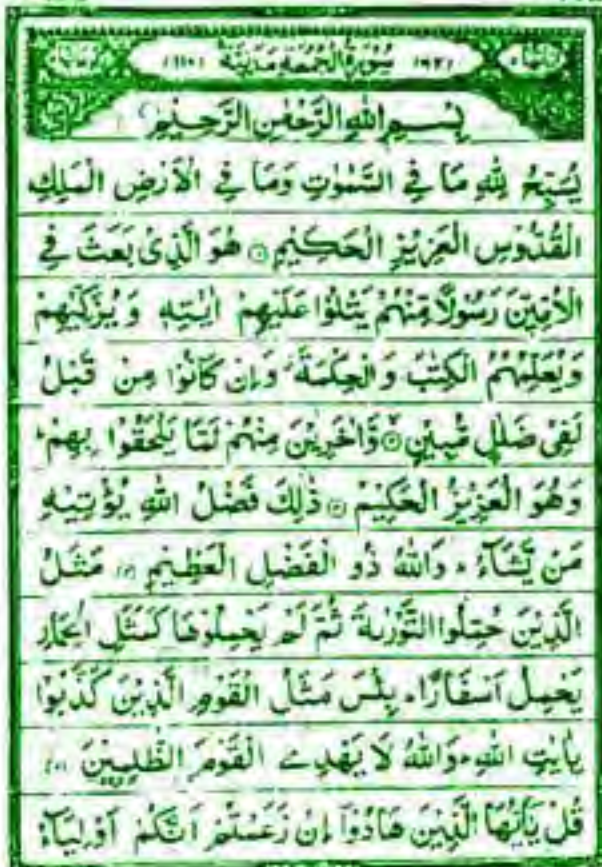 سُوْرَةُ الْجُمُعَةِ مَدَنِيَّةٌ
بِسْمِ اللّٰهِ الرَّحْمٰنِ الرَّحِيْمِ
يُسَبِّحُ لِلّٰهِ مَا فِي السَّمٰوٰتِ وَمَا فِي الْاَرْضِ الْمَلِكِ
الْقُدُّوْسِ الْعَزِيْزِ الْحَكِيْمِ ۝ هُوَ الَّذِيْ بَعَثَ فِي
الْاُمِّيّٖنَ رَسُوْلًا مِّنْهُمْ يَتْلُوْا عَلَيْهِمْ اٰيٰتِهٖ وَيُزَكِّيْهِمْ
وَيُعَلِّمُهُمُ الْكِتٰبَ وَالْحِكْمَةَ وَاِنْ كَانُوْا مِنْ قَبْلُ
لَفِيْ ضَلٰلٍ مُّبِيْنٍ ۝ وَّاٰخَرِيْنَ مِنْهُمْ لَمَّا يَلْحَقُوْا بِهِمْ ط
وَهُوَ الْعَزِيْزُ الْحَكِيْمُ ۝ ذٰلِكَ فَضْلُ اللّٰهِ يُؤْتِيْهِ
مَنْ يَّشَآءُ وَاللّٰهُ ذُو الْفَضْلِ الْعَظِيْمِ ۝ مَثَلُ
الَّذِيْنَ حُمِّلُوا التَّوْرٰىةَ ثُمَّ لَمْ يَحْمِلُوْهَا كَمَثَلِ الْحِمَارِ
يَحْمِلُ اَسْفَارًا بِئْسَ مَثَلُ الْقَوْمِ الَّذِيْنَ كَذَّبُوْا
بِاٰيٰتِ اللّٰهِ وَاللّٰهُ لَا يَهْدِي الْقَوْمَ الظّٰلِمِيْنَ ۝
قُلْ يٰٓاَيُّهَا الَّذِيْنَ هَادُوْٓا اِنْ زَعَمْتُمْ اَنَّكُمْ اَوْلِيَآءُ